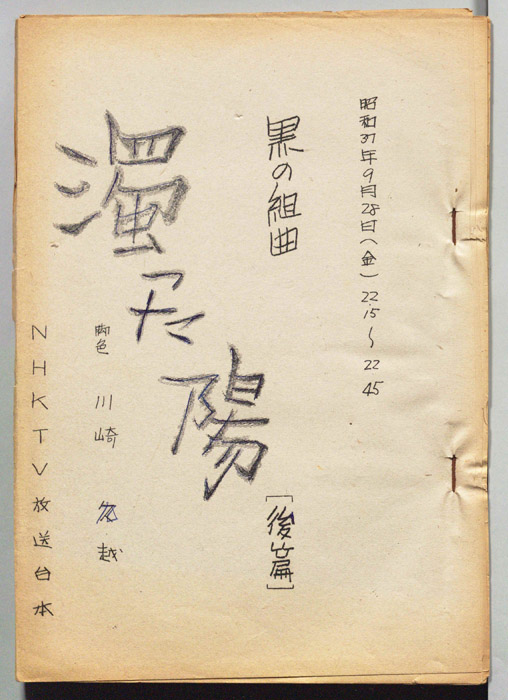 昭和37年9月28日(金) 22.15～22.45
黒の組曲
濁った陽
[後篇]
脚色 川崎 九越
NHKTV放送台本